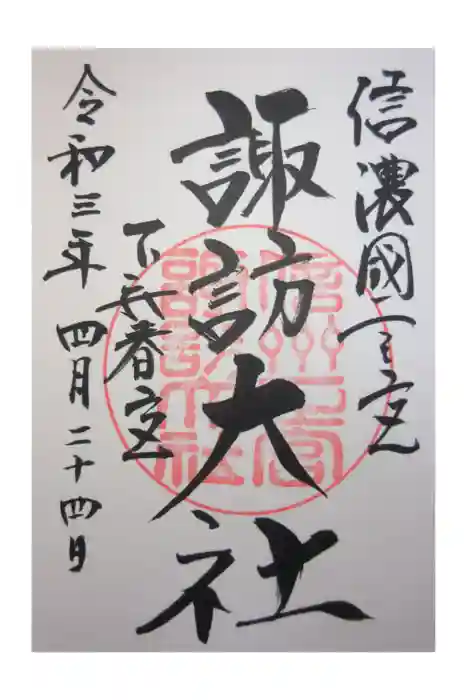 信濃國一之宮
諏訪大社
下社春宮
令和三年 四月二十四日
信州一之宮
諏訪大社